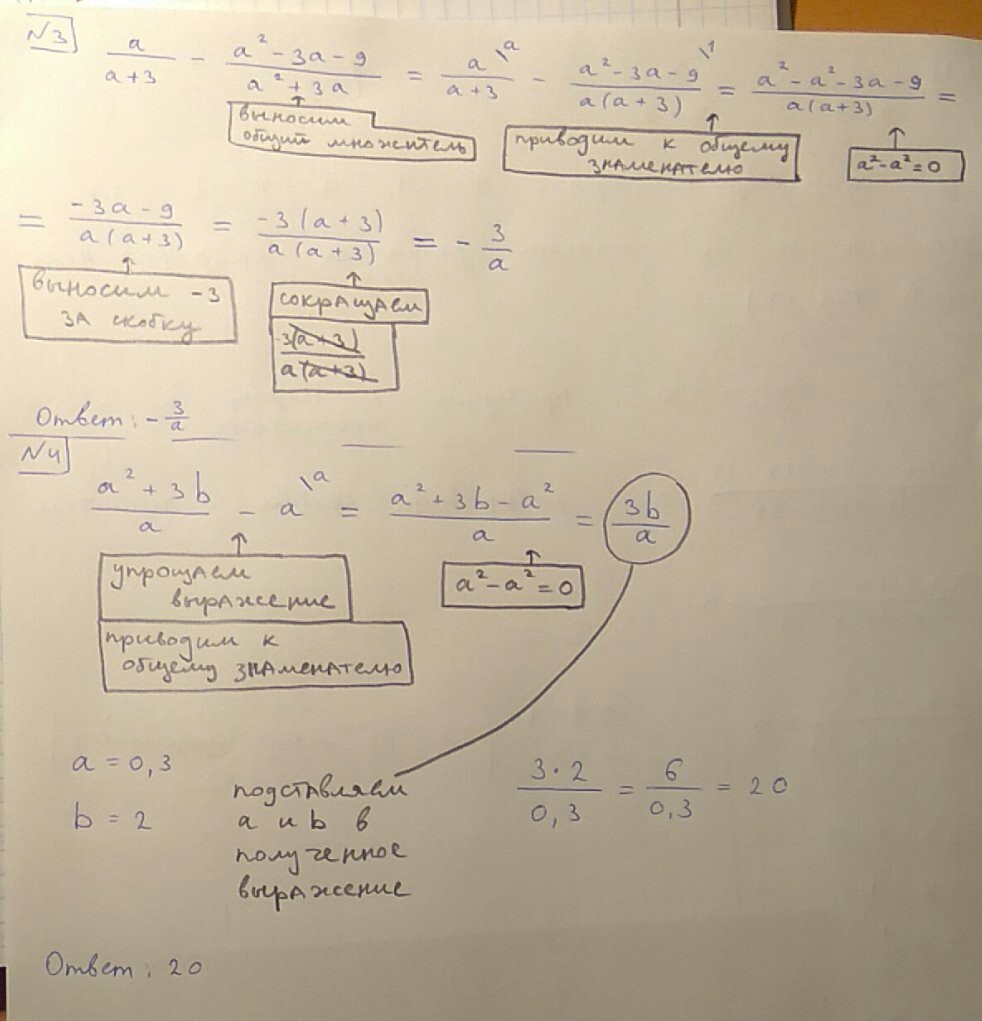 №3 a/(a+3) - (a² - 3a - 9)/(a² + 3a) = a\ᵃ/(a+3) - (a² - 3a - 9)\¹/(a(a+3)) = (a² - a² - 3a - 9)/(a(a+3)) =
выносим общий множитель
приводим к общему знаменателю
a² - a² = 0
= (-3a - 9)/(a(a+3)) = (-3(a+3))/(a(a+3)) = - 3/a
выносим -3
за скобку
сокращаем
-3(a+3)/a(a+3)
Ответ: - 3/a
№4
(a² + 3b)/a - a\ᵃ = (a² + 3b - a²)/a = 3b/a
упрощаем
выражение
a² - a² = 0
приводим к
общему знаменателю
a = 0,3
b = 2
подставляем
a и b в
полученное
выражение
(3·2)/0,3 = 6/0,3 = 20
Ответ: 20